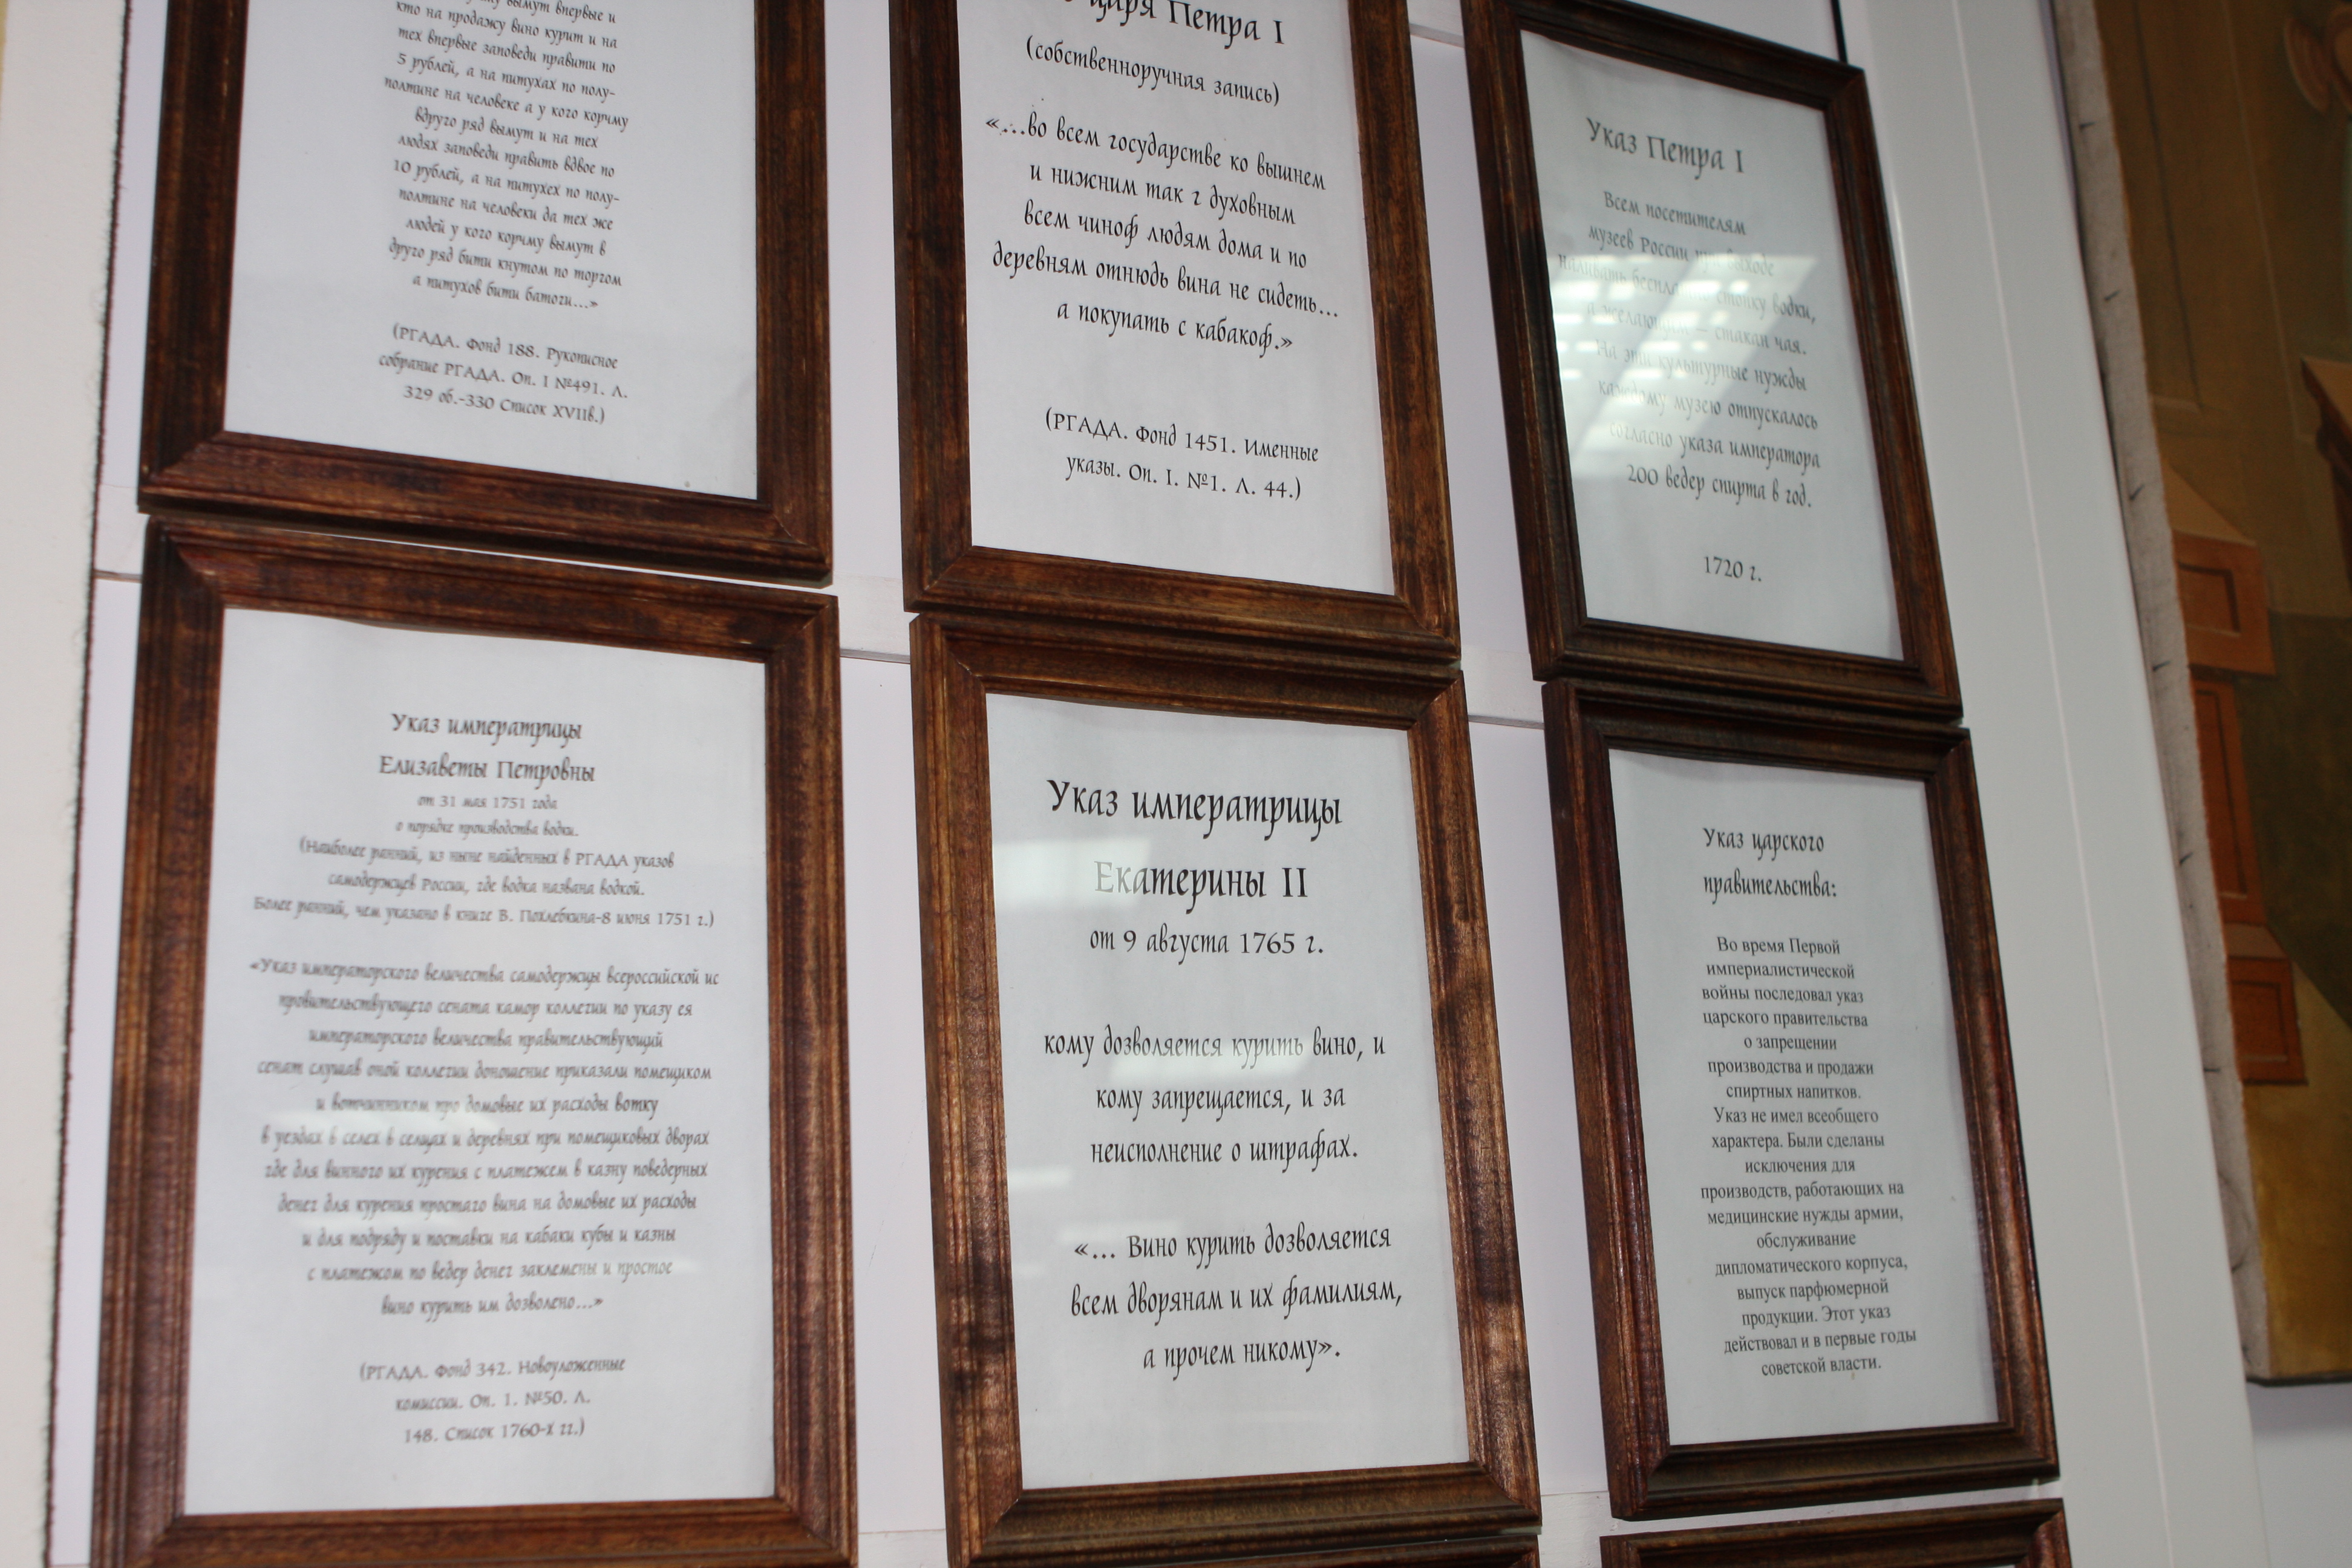 вымут впервые и
кто на продажу вино курит и на
тех впервые заповеди правити по
5 рублей, а на питухах по полу-
полтине на человеке а у кого корчму
вдруго ряд вымут и на тех
людях заповеди править вдвое по
10 рублей, а на питухех по полу-
полтине на человеки да тех же
людей у кого корчму вымут в
друго ряд бити кнутом по торгом
а питухов бити батоги...»
(РГАДА. Фонд 188. Рукописное
собрание РГАДА. Оп. I №491. Л.
329 об.-330 Список XVIIв.)
царя Петра I
(собственноручная запись)
«...во всем государстве ко вышнем
и нижним так г духовным
всем чиноф людям дома и по
деревням отнюдь вина не сидеть...
а покупать с кабакоф.»
(РГАДА. Фонд 1451. Именные
указы. Оп. I. №1. Л. 44.)
Указ Петра I
Всем посетителям
музеев России при выходе
наливать бесплатно стопку водки,
а желающим — стакан чая.
На эти культурные нужды
каждому музею отпускалось
согласно указа императора
200 ведер спирта в год.
1720 г.
Указ императрицы
Елизаветы Петровны
от 31 мая 1751 года
о порядке производства водки.
(Наиболее ранний, из ныне найденных в РГАДА указов
самодержцев России, где водка названа водкой.
Более ранний, чем указано в книге В. Похлебкина-8 июня 1751 г.)
«Указ императорского величества самодержцы всероссийской ис
провительствующего сената камор коллегии по указу ея
императорского величества правительствующий
сенат слушав оной коллегии доношение приказали помещиком
и вотчинником про домовые их расходы вотку
в уездах в селех в сельцах и деревнях при помещиковых дворах
где для винного их курения с платежем в казну поведерных
денег для курения простаго вина на домовые их расходы
и для подряду и поставки на кабаки кубы и казны
с платежом по ведер денег заклемены и простое
вино курить им дозволено...»
(РГАДА. Фонд 342. Новоуложенные
комиссии. Оп. 1. №50. Л.
148. Список 1760-х гг.)
Указ императрицы
Екатерины II
от 9 августа 1765 г.
кому дозволяется курить вино, и
кому запрещается, и за
неисполнение о штрафах.
«... Вино курить дозволяется
всем дворянам и их фамилиям,
а прочем никому».
Указ царского
правительства:
Во время Первой
империалистической
войны последовал указ
царского правительства
о запрещении
производства и продажи
спиртных напитков.
Указ не имел всеобщего
характера. Были сделаны
исключения для
производств, работающих на
медицинские нужды армии,
обслуживание
дипломатического корпуса,
выпуск парфюмерной
продукции. Этот указ
действовал и в первые годы
советской власти.